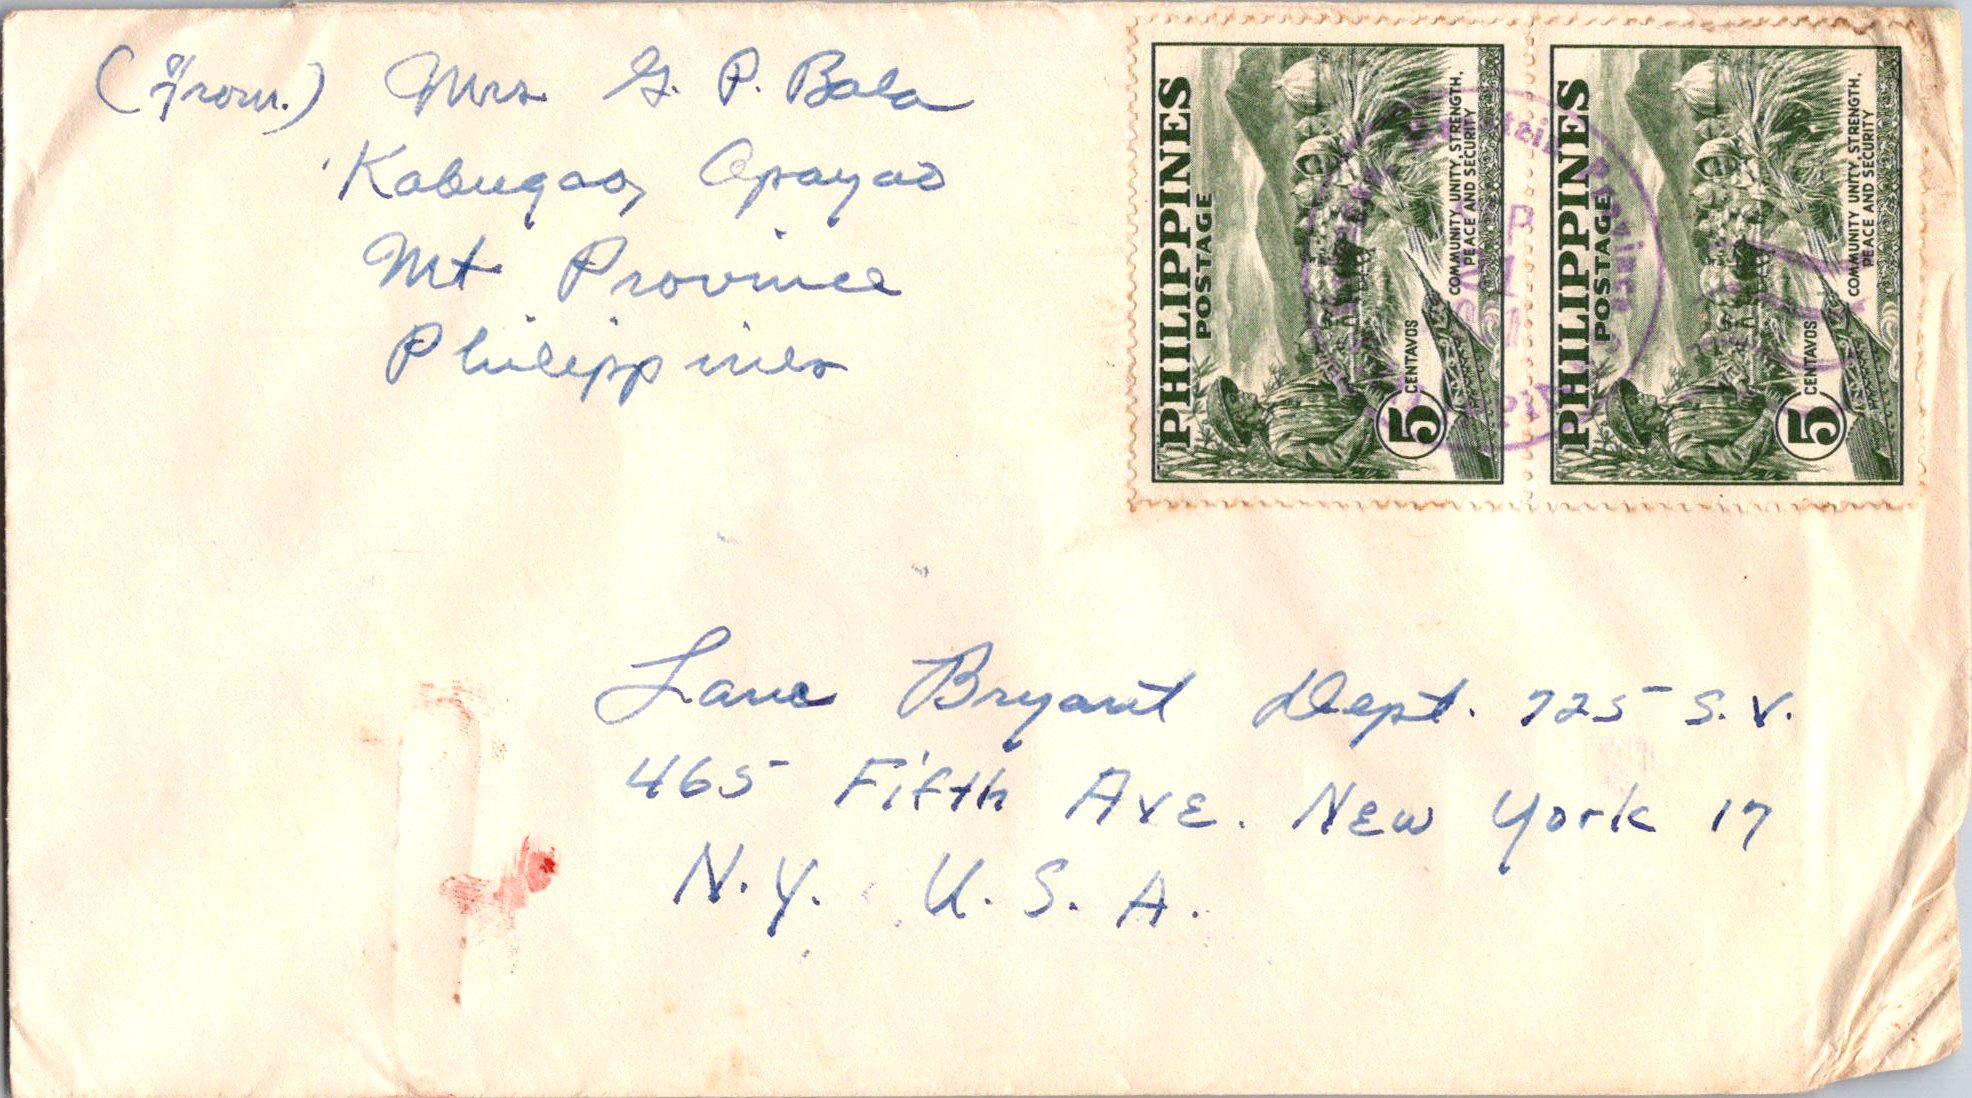 (From.) Mrs. G. P. Bala
Kabugao, Apayao
Mt Province
Philippines
PHILIPPINES
POSTAGE
5 CENTAVOS
COMMUNITY UNITY, STRENGTH,
PEACE AND SECURITY
PHILIPPINES
POSTAGE
5 CENTAVOS
COMMUNITY UNITY, STRENGTH,
PEACE AND SECURITY
Lane Bryant Dept. 725 S.V.
465 Fifth Ave. New York 17
N.Y. U.S.A.